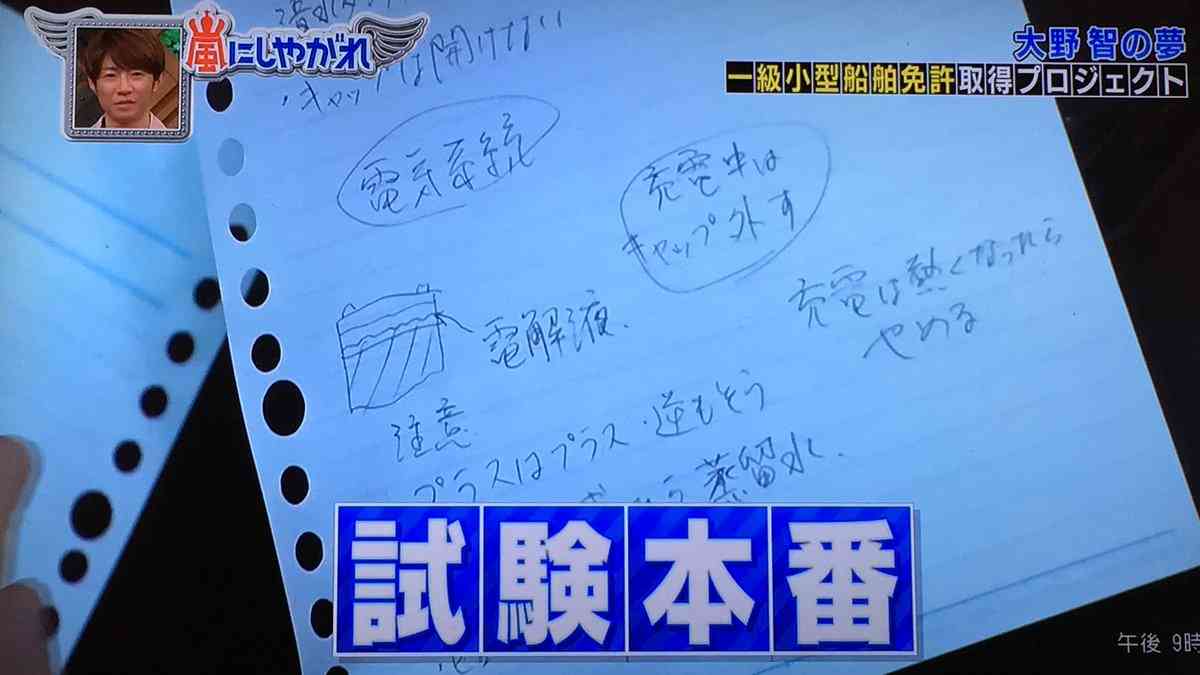 嵐にしやがれ
大野 智の夢
一級小型船舶免許取得プロジェクト
・キャップは開けない
電気系統
充電中は
キャップ外す
充電は熱くなったら
やめる
電解液
注意
プラスはプラス・逆もそう
蒸留水
試験本番
午後 9時